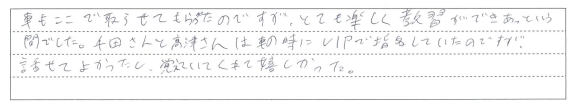 車もここで取らせてもらったのですが、とても楽しく教習ができあっという
間でした。本田さんと高津さんは車の時にVIPで指名していたのですが
話せてよかったし、覚えていてくれて嬉しかった。